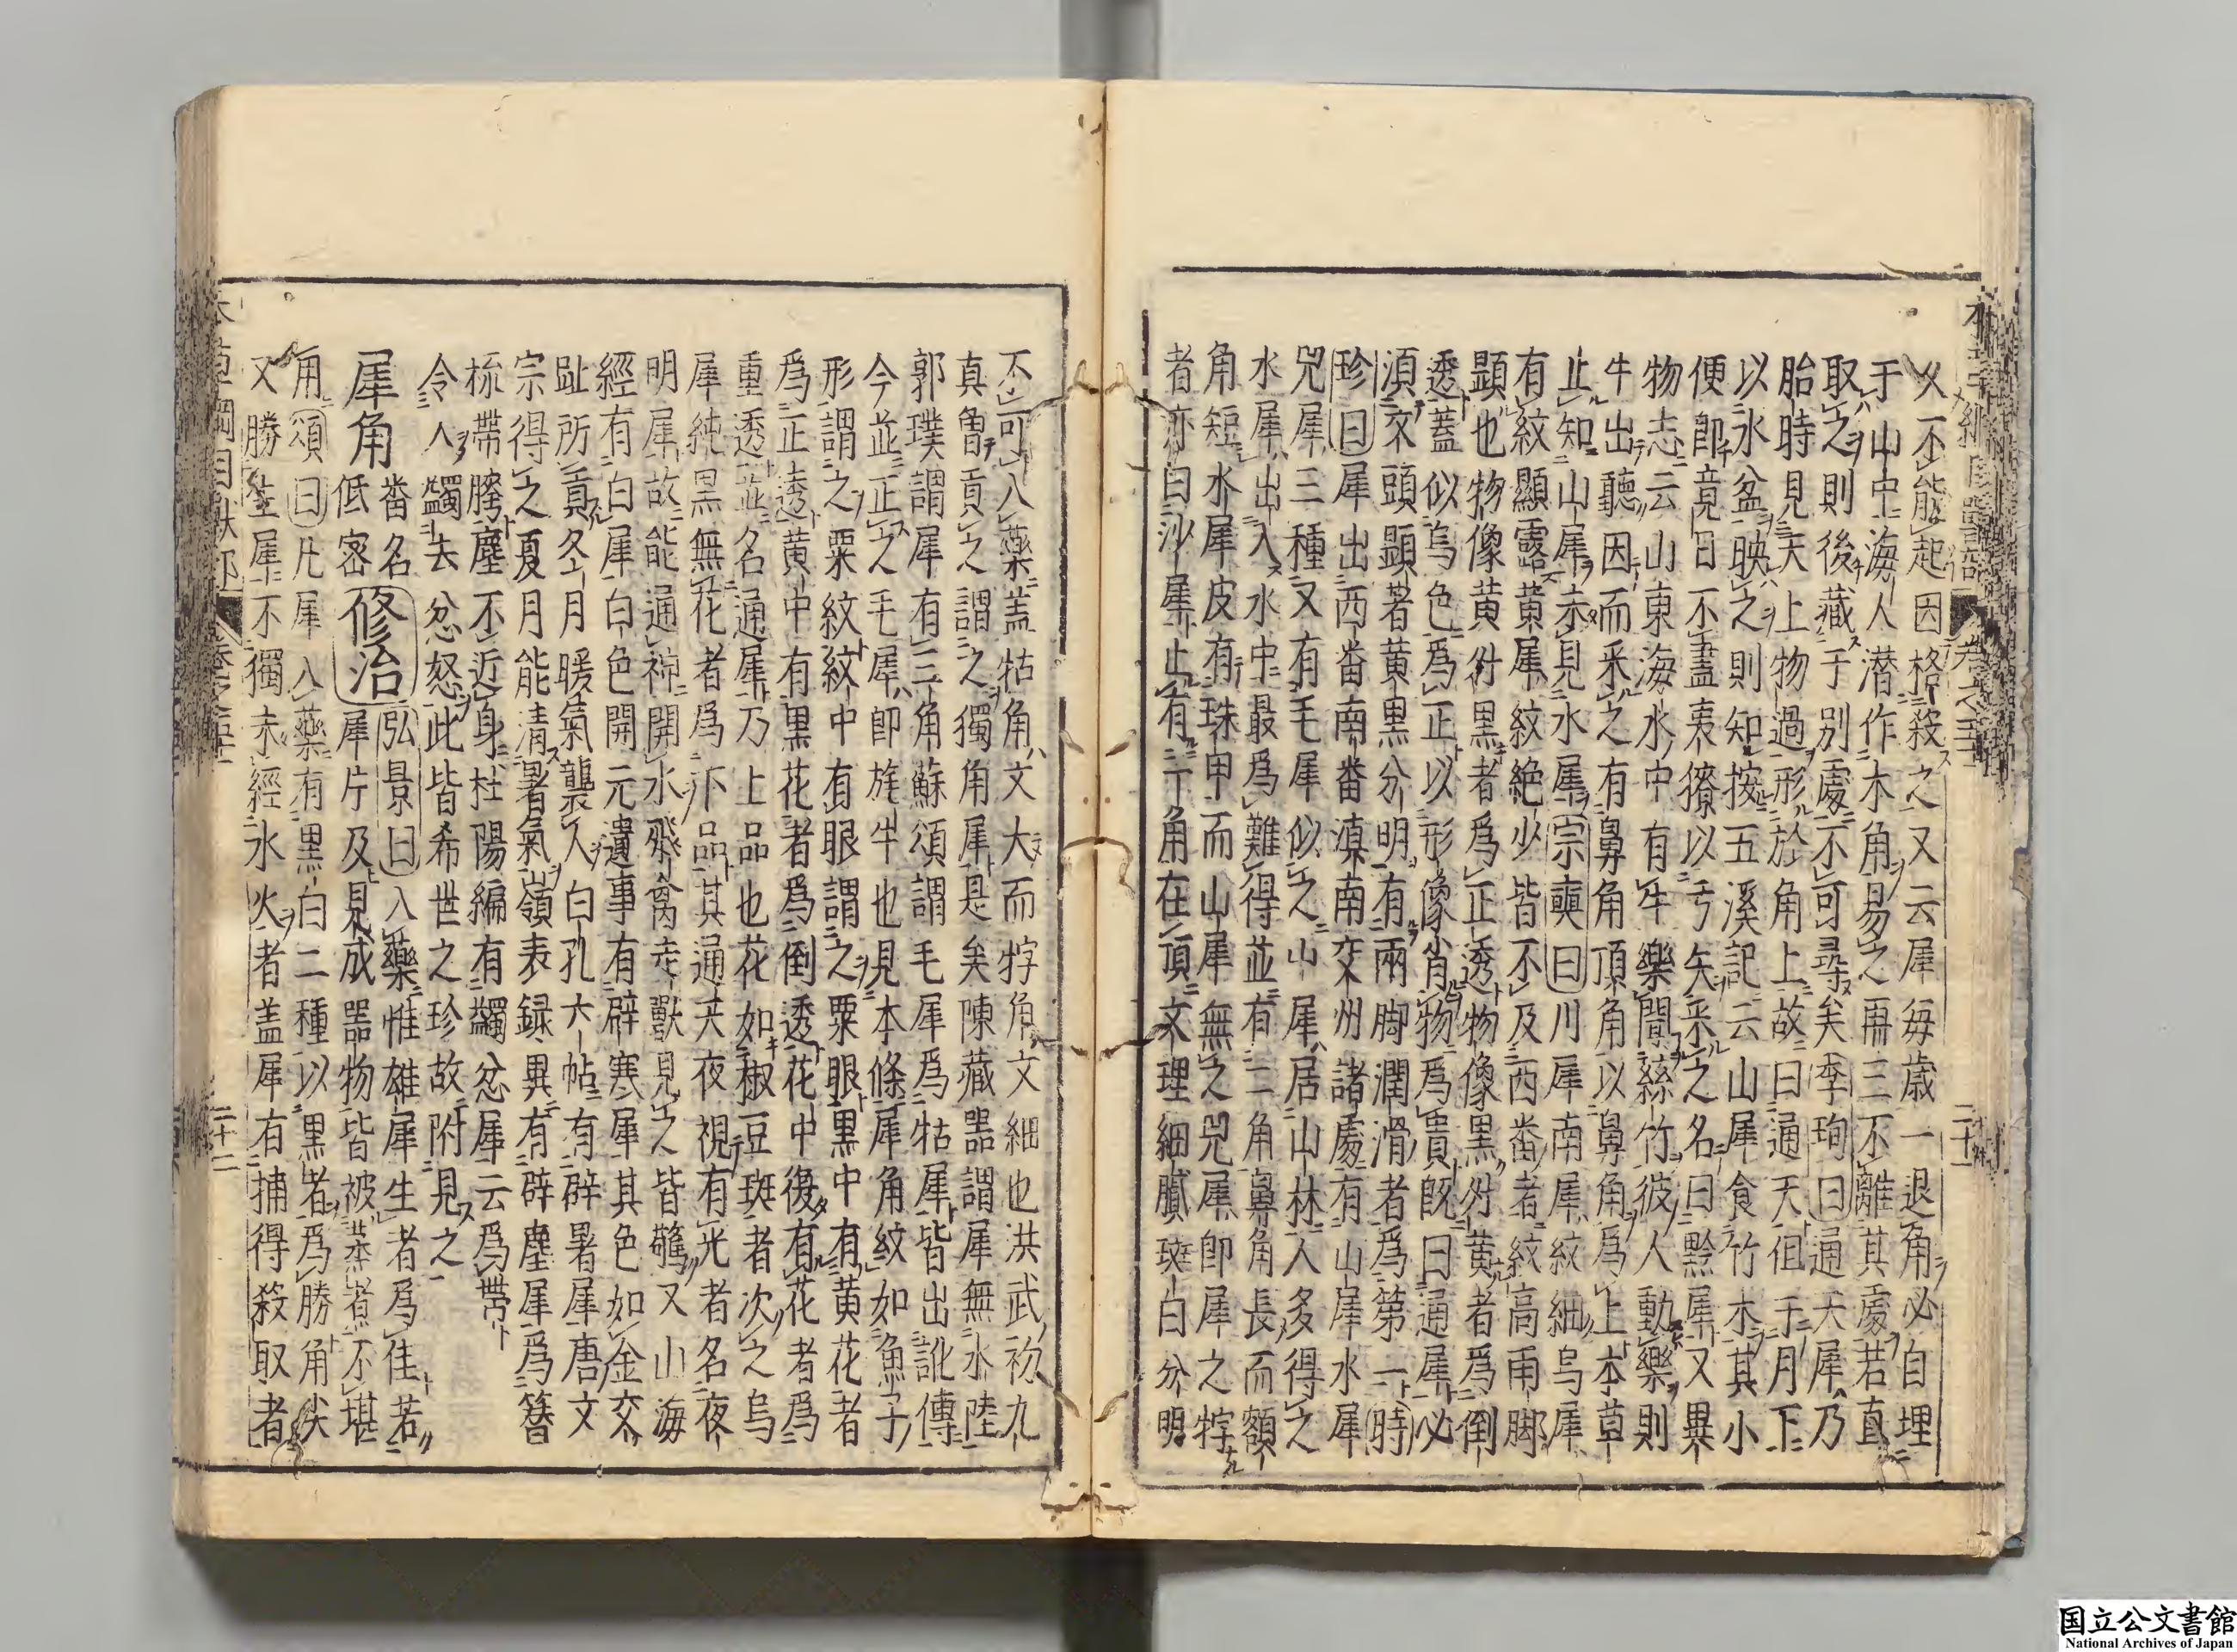 久不能起因格殺之又云犀每歳一退角必自埋
于山中海人潜作木角易之再三不離其處若直
取之則後藏于別處不可尋矣李珣曰通天犀乃
胎時見天上物過形於角上故曰通天但于月下
以水盆映之則知按五溪記云山犀食竹木其小
便即竟日不盡夷獠以弓矢采之名曰黔犀又異
物志云山東海水中有牛樂聞絲竹彼人動樂則
牛出聽因而采之有鼻角頂角以鼻角爲上本草
止知山犀未見水犀宗奭曰川犀南犀紋細烏犀
有紋顯露黄犀紋絶少皆不及西番者紋高兩脚
顯也物像黄外黒者爲正透物像黒外黄者爲倒
透蓋似烏色爲正以形像肖物爲貴既曰通犀必
須文頭顯著黄黒分明有兩脚潤滑者爲第一時
珍曰犀出西番南番滇南交州諸處有山犀水犀
兕犀三種又有毛犀似之山犀居山林人多得之
水犀出入水中最爲難得並有二角鼻角長而額
角短水犀皮有珠甲而山犀無之兕犀即犀之牸
者亦曰沙犀止有一角在頂文理細膩斑白分明
不可入藥蓋牯角文大而牸角文細也洪武初九
真曾貢之謂之獨角犀是矣陳藏噐謂犀無水陸
郭璞謂犀有三角蘇頌謂毛犀爲牯犀皆出訛傳
今並正之毛犀即旄牛也見本條犀角紋如魚子
形謂之粟紋紋中有眼謂之粟眼黒中有黄花者
爲正透黄中有黒花者爲倒透花中復有花者爲
重透並名通犀乃上品也花如椒豆斑者次之烏
犀純黒無花者爲下品其通天夜視有光者名夜
明犀故能通神開水飛禽走獸見之皆驚又山海
經有白犀白色開元遺事有辟寒犀其色如金交
趾所貢冬月暖氣襲人白孔六帖有辟暑犀唐文
宗得之夏月能清暑氣嶺表録異有辟塵犀爲簪
梳帶胯塵不近身杜陽編有蠲忿犀云爲帶
令人蠲去忿怒此皆希世之珍故附見之
犀角番名低密修治弘景曰入藥惟雄犀生者爲佳若
犀片及見成噐物皆被蒸煮不堪
用頌曰凡犀入藥有黒白二種以黒者爲勝角尖
又勝生犀不獨未經水火者盖犀有捕得殺取者